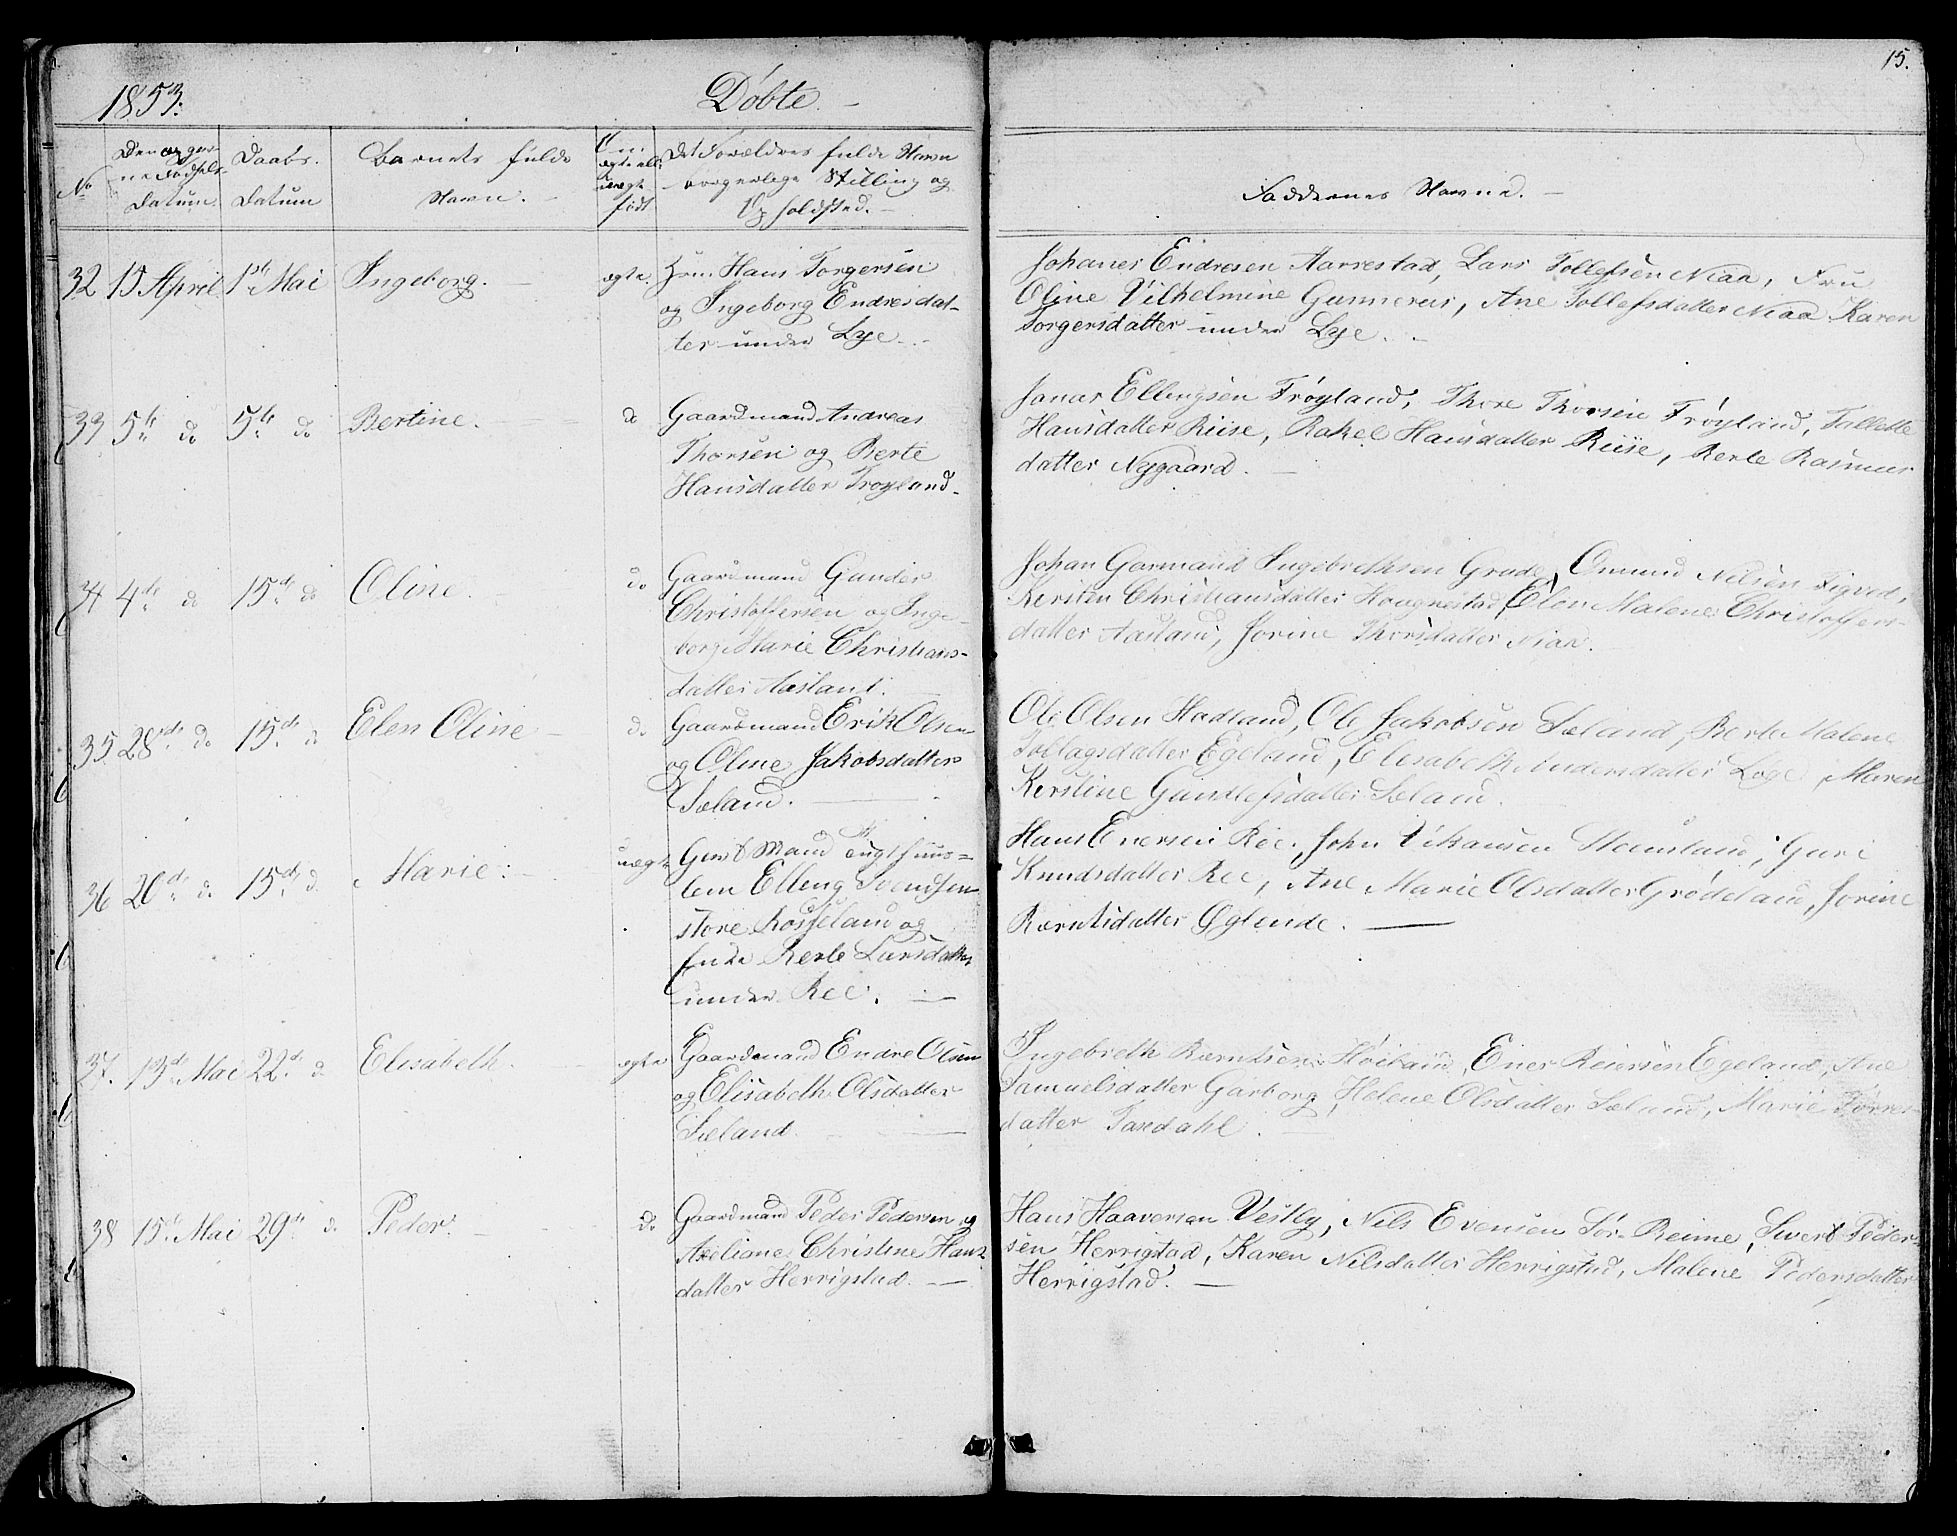 15.
1853.
Döbte.
No
Den
Fødsels-
Datum
Daabs-
Datum
Barnets fulde
Navn.
Om
ægte ell.
uægte
født
Det Forældres fulde Navn
borgerlige Stilling og
Opholdsted.
Faddernes Navne.
32 15 April 1ste Mai Ingeborg. ægte. Huusm. Hans Torgersen
og Ingeborg Endresdat-
ter under Lye.
Johanes Endresen Aarrestad, Lars Tollefsen Niaa, Fru
Oline Vilhelmine Gunnerus, Ane Tollefsdatter Niaa Karen
Torgersdatter under Lye.
33 5te do 5te do Bertine. do Gaardmand Andreas
Thorsen og Berte
Hansdatter Frøyland.
Jonas Ellingsen Frøyland, Thore Thorsen Frøyland, Tallette
Hansdatter Riise, Rakel Hansdatter Riise, Berte Rasmus
datter Nygaard.
34 4de do 15de do Oline. do Gaardmand Gunder
Christoffersen og Inge-
borg Marie Christians-
datter Aasland.
Johan Garmand Ingebrethsen Grude, Omund Nilsen Sigved,
Kirsten Christiansdatter Haugnestad, Elen Malene Christoffers-
datter Aasland, Jorine Thorsdatter Niaa.
35 28de do 15de do Elen Oline do Gaardmand Erik Olsen
og Oline Jakobsdatter
Sæland.
Ole Olsen Hadland, Ole Jakobsen Sæland, Berte Malene
Tollagsdatter Egeland, Elisabeth Andersdatter Loge, Maren
Kirstine Gundlefsdatter Sæland.
36 20de do 15de do Marie. uægte Gift Mand
Elling Svendsen
store Rosseland og
Berte Larsdatter
under Ree.
Hans Enersen Ree, John Vikansen Steinsland, Guri
Knudsdatter Ree, Ane Marie Olsdatter Grødeland, Jorine
Berntsdatter Øglende.
37. 13de Mai 22de do Elisabeth. ægte Gaardmand Endre Olsen
og Elisabeth Olsdatter
Sæland.
Ingebreth Berntsen Høiland, Ener Reiersen Egeland, Ane
Samuelsdatter Garborg, Helene Olsdatter Sæland, Marie Tørres-
datter Taxdahl.
38 15de Mai 29de do Peder. do Gaardmand Peder Pedersen og
Axeliane Christine Hans-
datter Herrigstad.
Hans Haaversen Vestly, Nils Evensen Sør-Reime, Sivert Peder-
sen Herrigstad, Karen Nilsdatter Herrigstad, Malene Pedersdatter
Herrigstad.